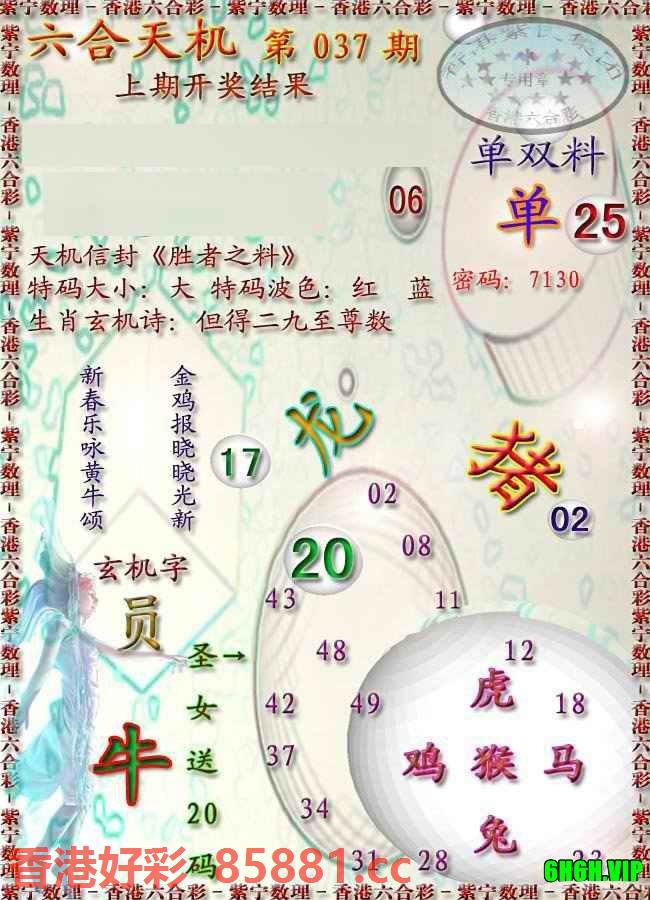 紫宁数理－香港六合彩－紫宁数理－香港六合彩－紫宁数理－香港六合彩
六合天机 第 037 期
上期开奖结果
香港紫氏集团
专用章
香港六合彩
单双料
单 25
06
天机信封《胜者之料》
特码大小：大 特码波色：红 蓝
密码：7130
生肖玄机诗：但得二九至尊数
新春乐咏黄牛颂
金鸡报晓晓光新
17
龙
猪
02
02
20
08
43
11
玄机字
员
48
12
圣女送20码
→
虎
42
49
18
牛
37
鸡 猴 马
34
兔
31
28
香港好彩 85881.cc
6H6H.VIP
紫宁数理－香港六合彩－紫宁数理－香港六合彩－紫宁数理－香港六合彩